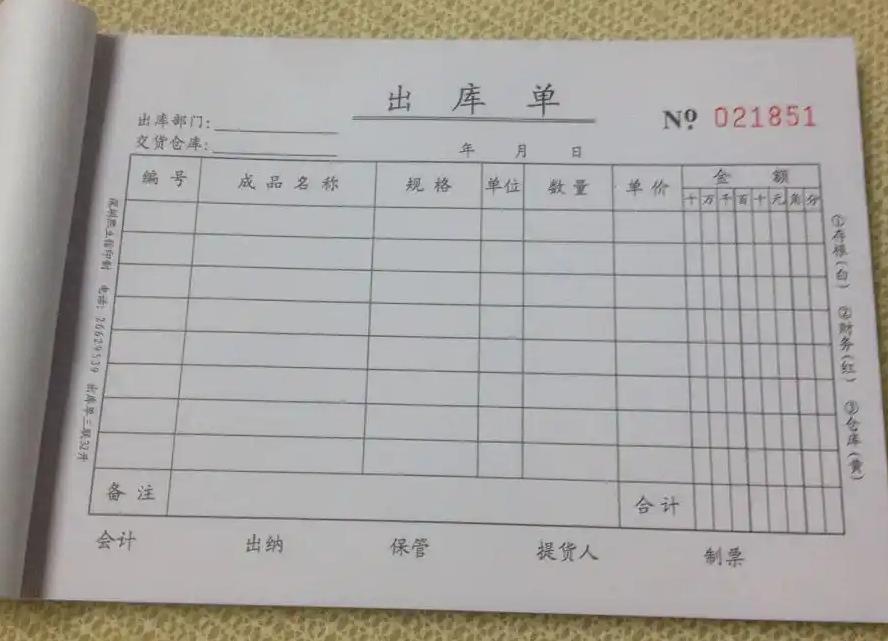 出库单
№ 021851
出库部门:
交货仓库:
年 月 日
编号 成品名称 规格 单位 数量 单价 金额
十 万 千 百 十 元 角 分
备注 合计
会计 出纳 保管 提货人 制票
①存根(白) ②财务(红) ③仓库(黄)
电话: 26629539 出库单三联32开